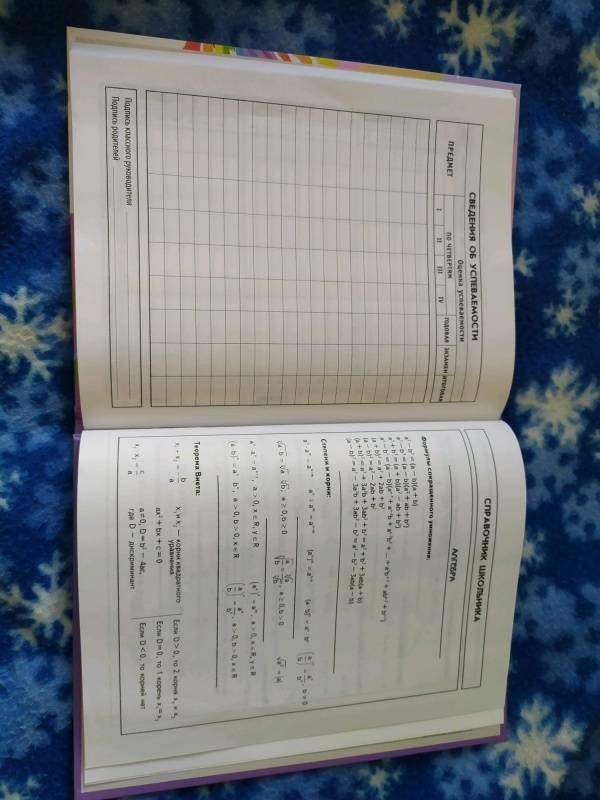 СВЕДЕНИЯ ОБ УСПЕВАЕМОСТИ
ПРЕДМЕТ
Оценка успеваемости
ПО ЧЕТВЕРТЯМ
I II III IV
ГОДОВАЯ ЭКЗАМЕН ИТОГОВАЯ
Подпись классного руководителя
Подпись родителей
СПРАВОЧНИК ШКОЛЬНИКА
АЛГЕБРА
Формулы сокращенного умножения:
a² − b² = (a − b)(a + b)
a³ − b³ = (a − b)(a² + ab + b²)
a³ + b³ = (a + b)(a² − ab + b²)
(a + b)² = a² + 2ab + b²
(a − b)² = a² − 2ab + b²
(a + b)³ = a³ + 3a²b + 3ab² + b³ = a³ + b³ + 3ab(a + b)
(a − b)³ = a³ − 3a²b + 3ab² − b³ = a³ − b³ − 3ab(a − b)
Степени и корни:
a ≥ 0, b ≥ 0
a ≥ 0, b > 0
a > 0, x ∈ R, y ∈ R
a > 0, x ∈ R, y ∈ R
a > 0, b > 0, x ∈ R
a > 0, b > 0, x ∈ R
Теорема Виета:
x₁ + x₂ = −b/a
x₁ · x₂ = c/a
x₁ и x₂ — корни квадратного
уравнения
ax² + bx + c = 0
a ≠ 0, D = b² − 4ac,
где D — дискриминант
Если D > 0, то 2 корня x₁ ≠ x₂
Если D = 0, то 1 корень x₁ = x₂
Если D < 0, то корней нет